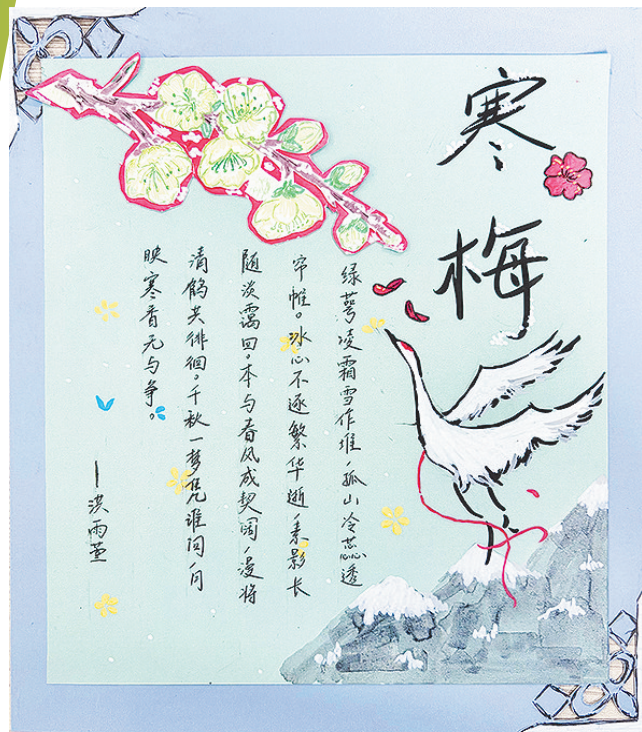 寒梅
绿萼凌霜雪作堆，孤山冷蕊透
帘帷。冰心不逐繁华逝，素影长
随淡霭回。本与春风成契阔，漫将
清鹤共徘徊。千秋一梦凭谁问，月
映寒香无与争。
—洪雨萱